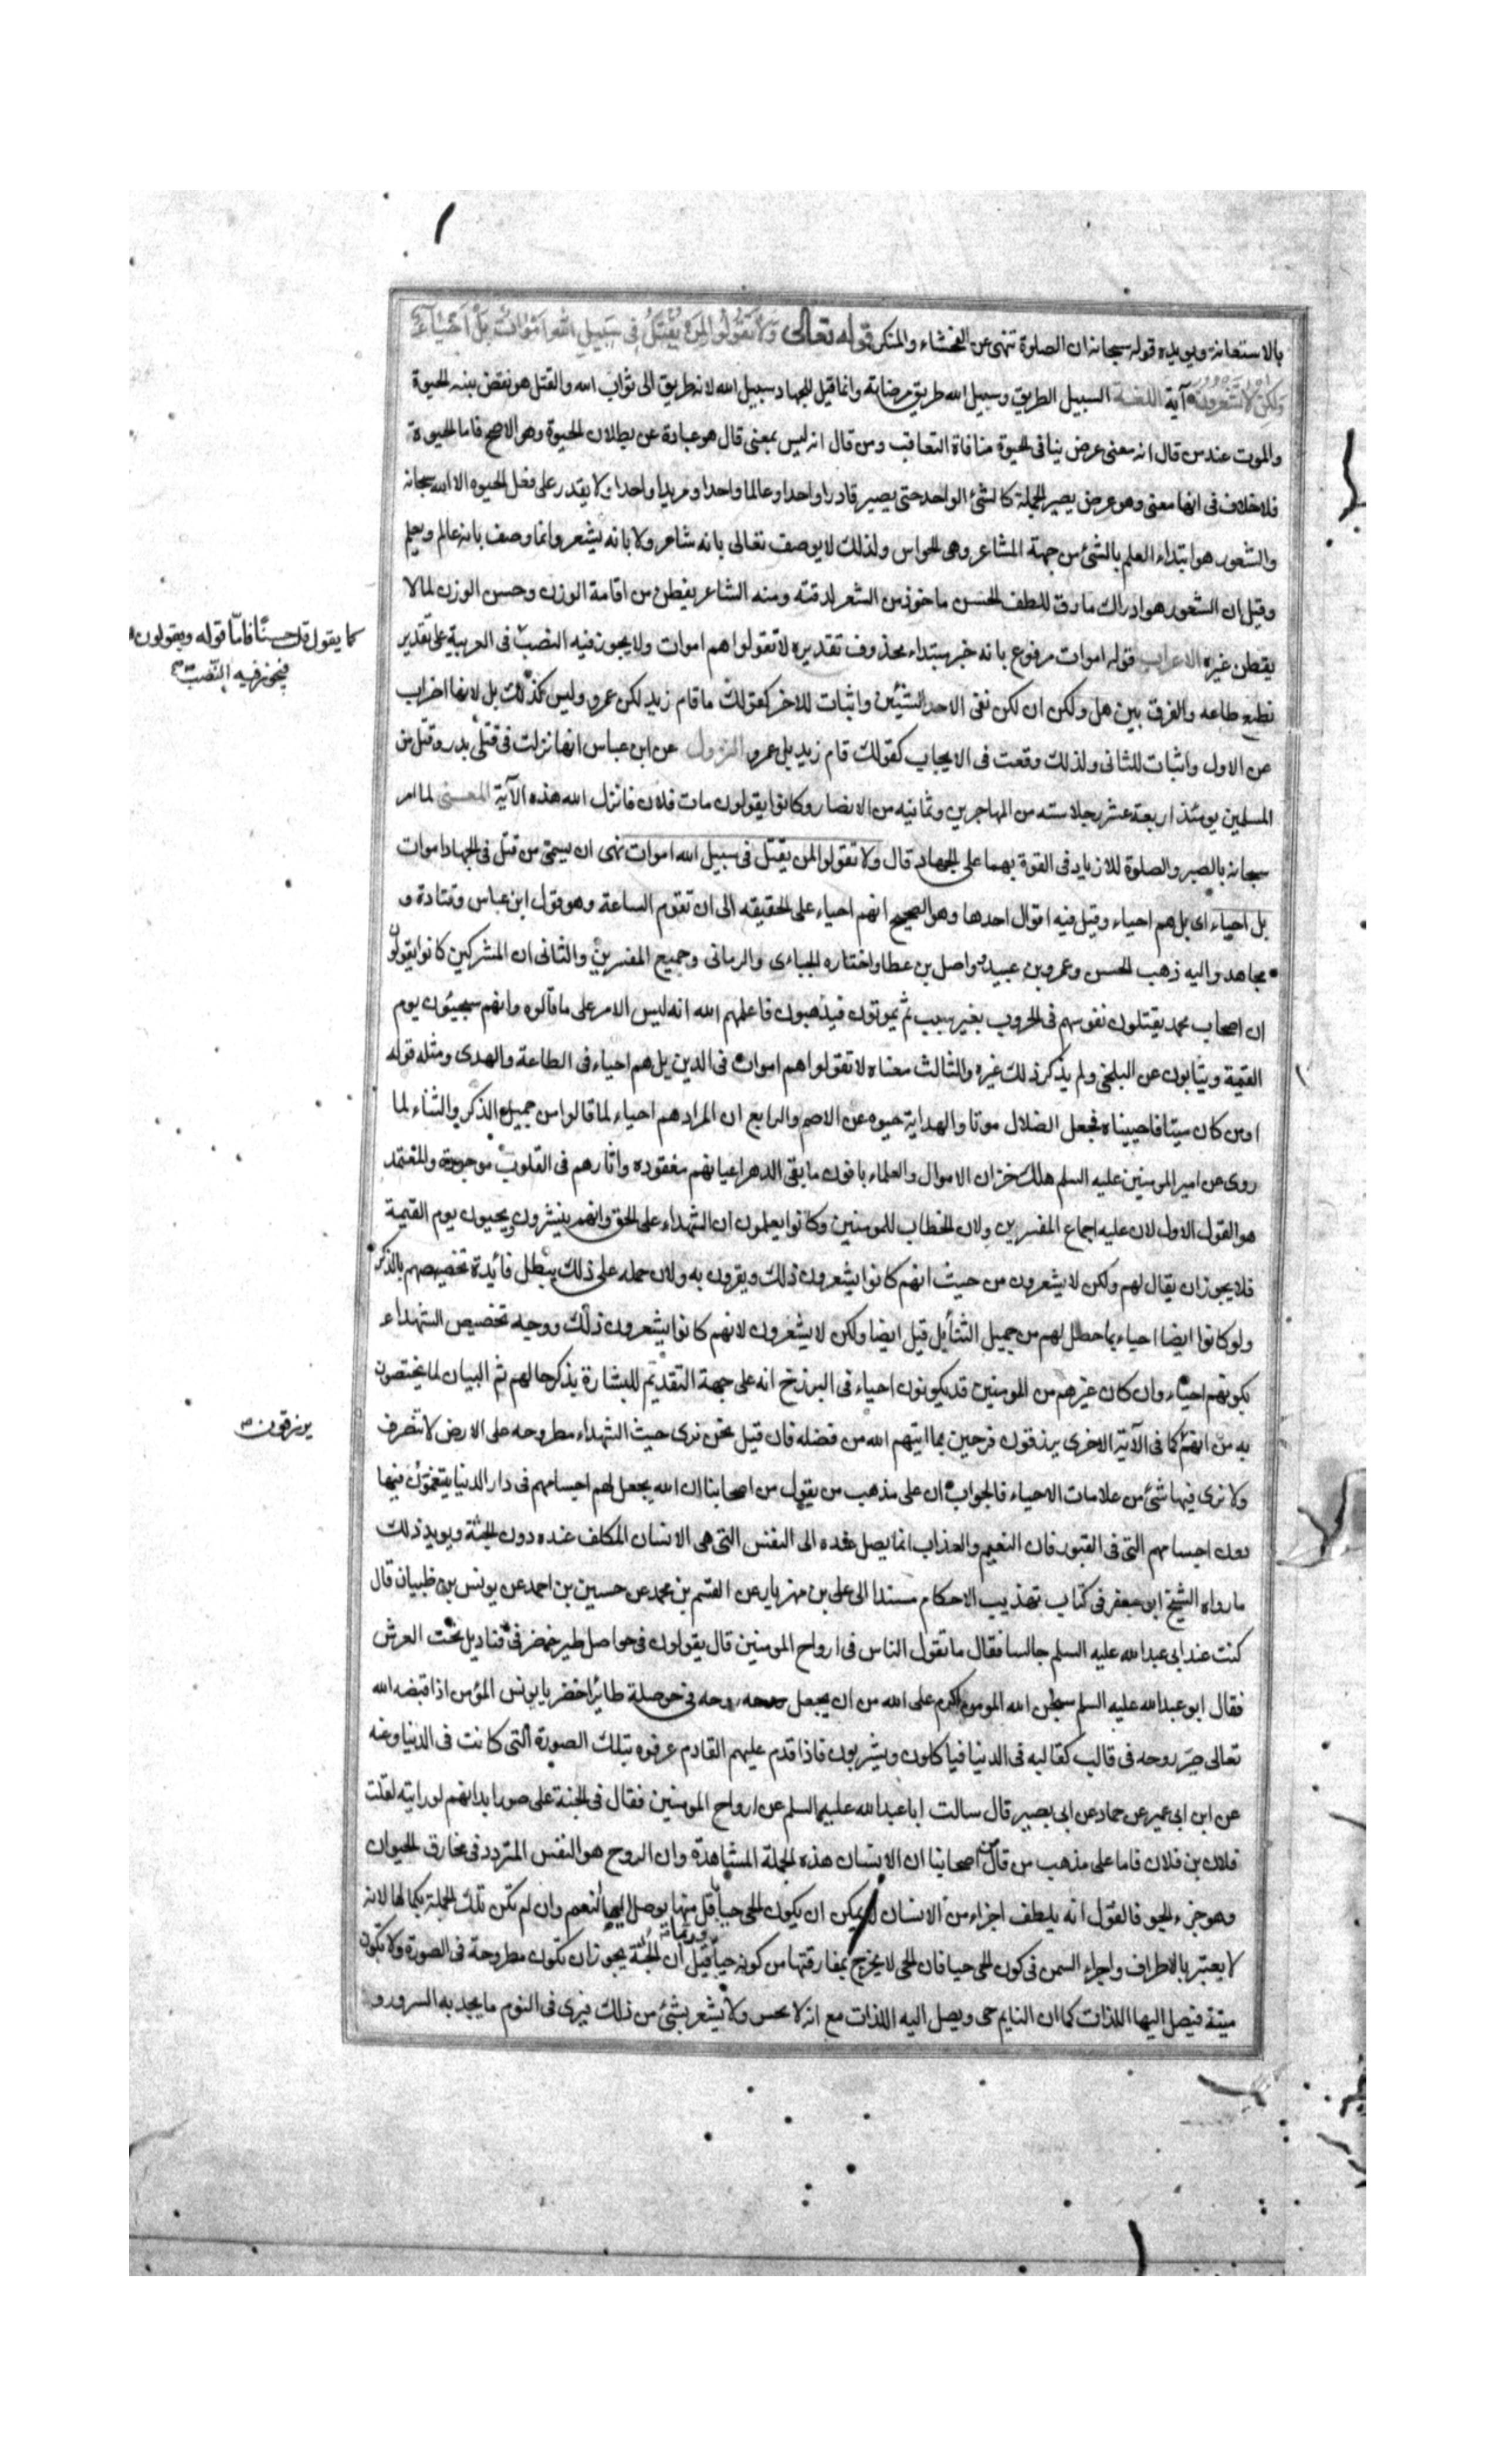 بالاستعانة ويويده قوله سبحانه ان الصلوة تنهى عن الفحشاء والمنكر قوله تعالى وَلَا تَقُولُوا لِمَنْ يُقْتَلُ فِى سَبِيلِ اللّهِ اَمْوَاتٌ بَلْ اَحْيَاءٌ
وَلكِنْ لَا تَشْعُرُونَ آية اللغة السبيل الطريق وسبيل الله طريق مرضاته وانما قيل للجهاد سبيل الله لانه طريق الى ثواب الله والقتل هو نقض بنيه الحيوة
والموت عند من قال انه معنى عرض ينافى الحيوة منافاة التعاقب ومن قال انه ليس بمعنى قال هو عبادة عن بطلان الحيوة وهو الاصح فاما الحيوة
فلا خلاف فى انها معنى وهو عرض يصير الجملة كالشئ الواحد حتى يصير قادرا واحدا وعالما واحدا ومريدا واحدا ولا يقدر على فعل الحيوه الا الله سبحانه
والشعور هو ابتداء العلم بالشئ من جهة المشاعر وهى الحواس ولذلك لا يوصف تعالى بانه شاعر ولا بانه يشعر وانما وصف بانه عالم ويعلم
وقيل ان الشعور هو ادراك ما دق للطف الحسن ماخوذ من الشعر لدقته ومنه الشاعر يفطن من اقامة الوزن وحسن الوزن لما لا
يفطن غيره الاعراب قوله اموات مرفوع بانه خبر مبتداء محذوف تقديره لا تقولوا هم اموات ولا يجوز فيه النصب فى العربية على تقدير
كما يقول قلت حسنًا فامّا قوله ويقولون
فيجوز فيه النّصب
نطيع طاعه والفرق بين هل ولكن ان لكن نفى الاحد الشيئين واثبات للاخر كقولك ما قام زيد لكن عمرو وليس كذلك بل لانها اضراب
عن الاول واثبات للثانى ولذلك وقعت فى الايجاب كقولك قام زيد بل عمرو النزول عن ابن عباس انها نزلت فى قتلى بدر وقتل من
المسلمين يومئذ اربعة عشر رجلا سته من المهاجرين وثمانيه من الانصار وكانوا يقولون مات فلان فانزل الله هذه الآية المعنى لما امر
سبحانه بالصبر والصلوة للازدياد فى القوة بهما على الجهاد قال ولا تقولوا لمن يقتل فى سبيل الله اموات نهى ان يسمى من قتل فى الجهاد اموات
بل احياء اى بل هم احياء وقيل فيه اقوال احدها وهو الصحيح انهم احياء على الحقيقه الى ان تقوم الساعة وهو قول ابن عباس وقتادة و
مجاهد واليه ذهب الحسن وعمرو بن عبيد وواصل بن عطا واختاره الجباءى والرمانى وجميع المفسرين والثانى ان المشركين كانوا يقولون
ان اصحاب محمد يقتلون نفوسهم فى الحروب بغير سبب ثم يموتون فيذهبون فاعلمهم الله انه ليس الامر على ما قالوه وانهم سيحيون يوم
القيمة ويثابون عن البلخى ولم يذكر ذلك غيره والثالث معناه لا تقولوا هم اموات فى الدين بل هم احياء فى الطاعة والهدى ومثله قوله
او من كان ميتا فاحييناه فجعل الضلال موتا والهداية حيوه عن الاصم والرابع ان المراد هم احياء لما قالوا من جميل الذكر والثناء لما
روى عن امير المومنين عليه السلم هلك خزان الاموال والعلماء باقون ما بقى الدهر اعيانهم مفقوده واثارهم فى القلوب موجودة والمعتمد
هو القول الاول لان عليه اجماع المفسرين ولان الخطاب للمومنين وكانوا يعلمون ان الشهداء على الحق وانهم ينشرون ويحيون يوم القيمة
فلا يجوز ان يقال لهم ولكن لا يشعرون من حيث انهم كانوا يشعرون ذلك ويقرون به ولان حمله على ذلك يبطل فائدة تخصيصهم بالذكر
ولو كانوا ايضا احياء بما حصل لهم من جميل الثنا بل قيل ايضا ولكن لا يشعرون لانهم كانوا يشعرون ذلك ووجه تخصيص الشهداء
بكونهم احياء وان كان غيرهم من المومنين قد يكونون احياء فى البرزخ انه على جهة التقديم للبشارة يذكر حالهم ثم البيان لما يختصون
به من انهم كما فى الآية الاخرى يرزقون فرحين بما اتيهم الله من فضله فان قيل نحن نرى جيث الشهداء مطروحه على الارض لا تتصرف
يرزقون
ولا نرى فيها شئ من علامات الاحياء فالجواب ان على مذهب من يقول من اصحابنا ان الله يجعل لهم اجسامهم فى دار الدنيا يتنعمون فيها
دون اجسامهم التى فى القبور فان النعيم والعذاب انما يصل عنده الى النفس التى هى الانسان المكلف عنده دون الجثة ويويد ذلك
ما رواه الشيخ ابو جعفر فى كتاب تهذيب الاحكام مسندا الى على بن مهزيار عن القسم بن محمد عن حسين بن احمد عن يونس بن ظبيان قال
كنت عند ابى عبد الله عليه السلم جالسا فقال ما تقول الناس فى ارواح المومنين قال يقولون فى حواصل طير خضر فى قناديل تحت العرش
فقال ابو عبد الله عليه السلم سبحان الله المومن اكرم على الله من ان يجعل روحه فى حوصلة طائر اخضر يا يونس المؤمن اذا قبضه الله
تعالى صيّر روحه فى قالب كقالبه فى الدنيا فياكلون ويشربون فاذا قدم عليهم القادم عرفوه بتلك الصورة التى كانت فى الدنيا وعنه
عن ابن ابى عمير عن حماد عن ابى بصير قال سالت ابا عبد الله عليه السلم عن ارواح المومنين فقال فى الجنة على صور ابدانهم لو رايته لقلت
فلان بن فلان فاما على مذهب من قال من اصحابنا ان الانسان هذه الجملة المشاهدة وان الروح هو النفس المتردد فى مخارق الحيوان
وهو جزء الجو فالقول انه يلطف اجزاء من الانسان لا يمكن ان يكون الحى حيا باقل منها يوصل اليها النعيم وان لم تكن تلك الجملة بكمالها لانه
لا يعتبر بالاطراف واجزاء السمن فى كون الحى حيا فان الحى لا يخرج بمفارقتها من كونه حيا وربما قيل ان الجثة يجوز ان تكون مطروحة فى الصورة ولا تكون
ميتة فيصل اليها اللذات كما ان النايم حى ويصل اليه اللذات مع انه لا يحس ولا يشعر بشئ من ذلك فيرى فى النوم ما يجد به السرور و